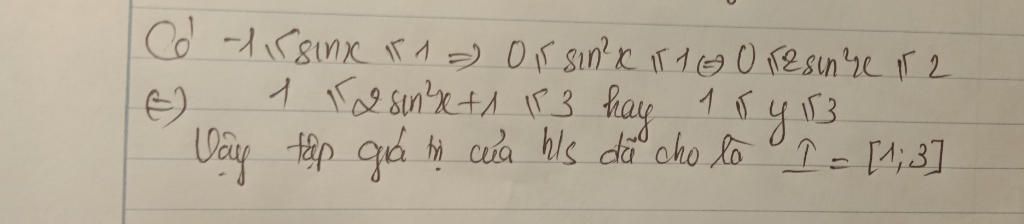 Có -1 ≤ sinx ≤ 1 ⇒ 0 ≤ sin²x ≤ 1 ⇔ 0 ≤ 2sin²x ≤ 2
⇔ 1 ≤ 2sin²x+1 ≤ 3 hay 1 ≤ y ≤ 3
Vậy tập giá trị của h/s đã cho là T = [1;3]